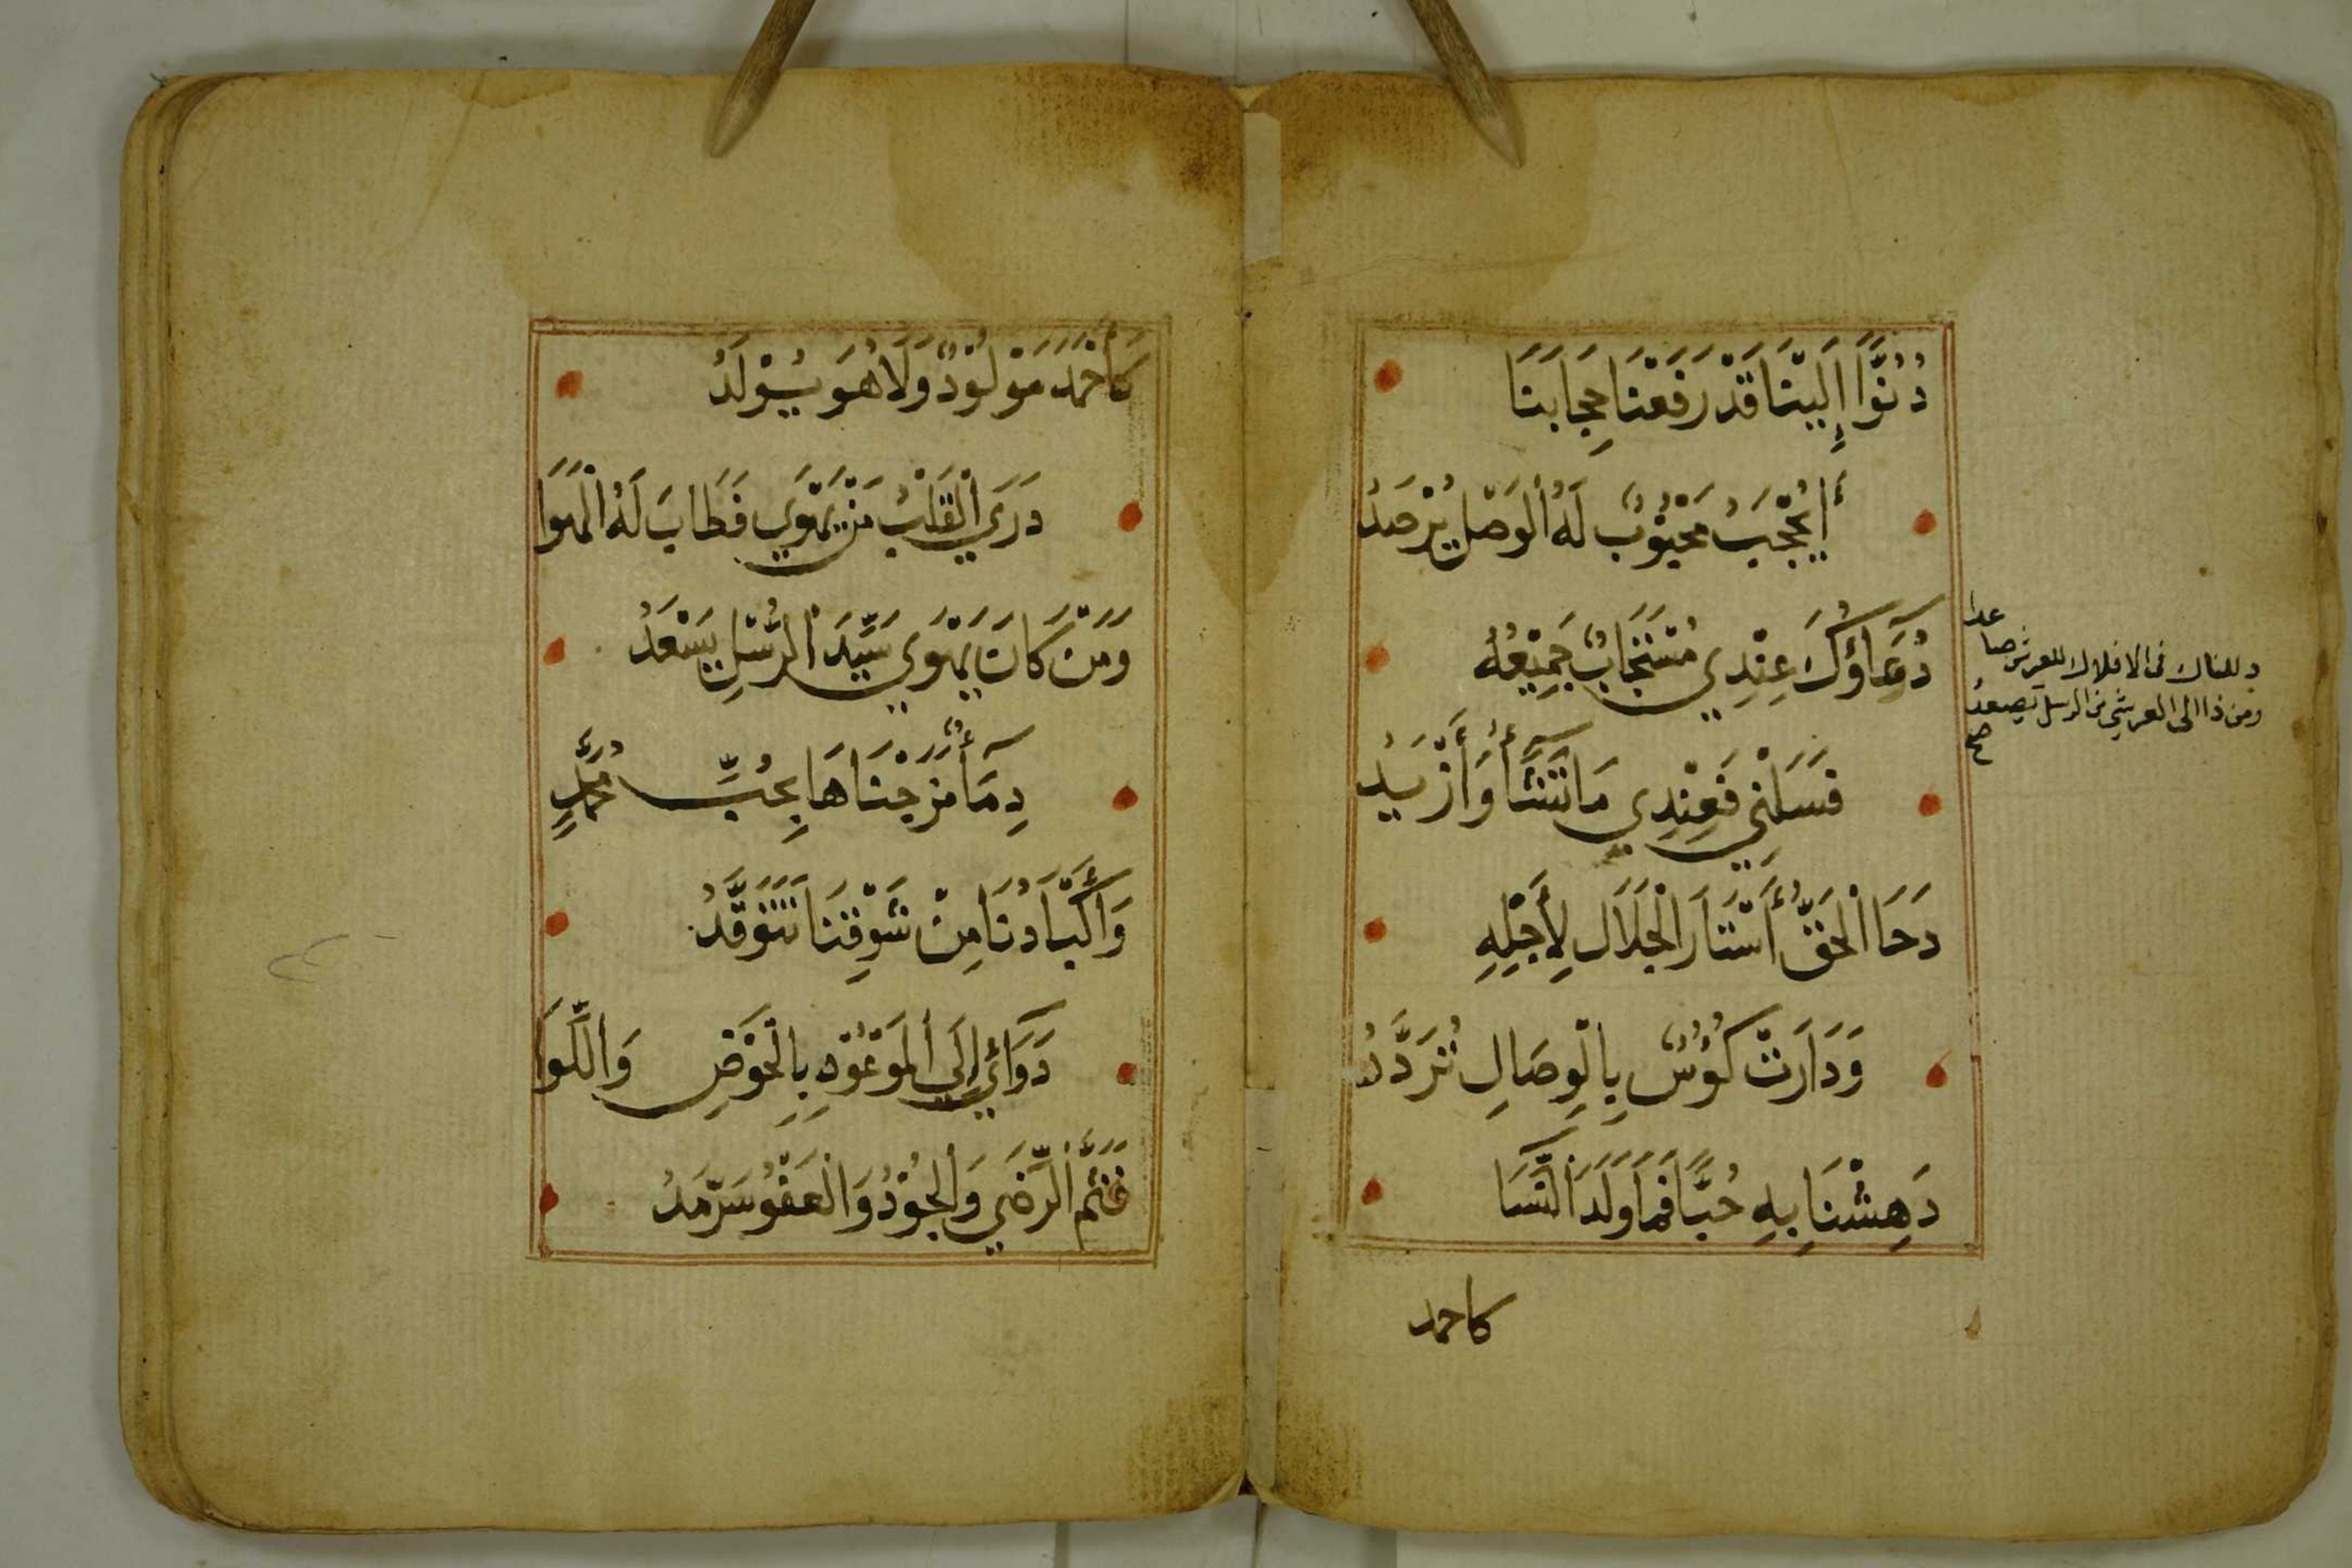 دُنُوًّا إِلَيْنَا قَدْ رَفَعْنَا حِجَابَنَا
أَيُحْجَبُ مَحْبُوْبٌ لَهُ الْوَصْلُ يُرْصَدُ
دُعَآؤُكَ عِنْدِي مُسْتَجَابٌ جَمِيْعُهُ
فَسَلْنِي فَعِنْدِي مَا تَشَآءُ وَأَزْيَدُ
دَحَا الْحَقُّ أَسْتَارَ الْجَلَالِ لِأَجْلِهِ
وَدَارَتْ كُؤُسٌ بِالْوِصَالِ تُرَدَّدُ
دَهِشْنَا بِهِ حُبًّا فَمَا وَلَدَ النِّسَا
كاحمد
دللناك فى الافلاك للعرش
ومن ذا الى العرش من الرسل يصعدُ
صح
كَأَحْمَدَ مَوْلُوْدٌ وَلَا هُوَ يُوْلَدُ
دَرَى الْقَلْبُ مَنْ يَهْوَى فَطَابَ لَهُ الْهَوَا
وَمَنْ كَانَ يَهْوَى سَيِّدَ الرُّسْلِ يَسْعَدُ
دِمَآءٌ مَزَجْنَاهَا بِحُبِّ مُحَمَّدٍ
وَأَكْبَادُنَا مِنْ شَوْقِنَا تَتَوَقَّدُ
دَوَائِي إِلَى الْمَوْعُوْدِ بِالْحَوْضِ وَاللِّوَا
فَثَمَّ الرِّضَى وَالْجُوْدُ وَالْعَفْوُ سَرْمَدُ